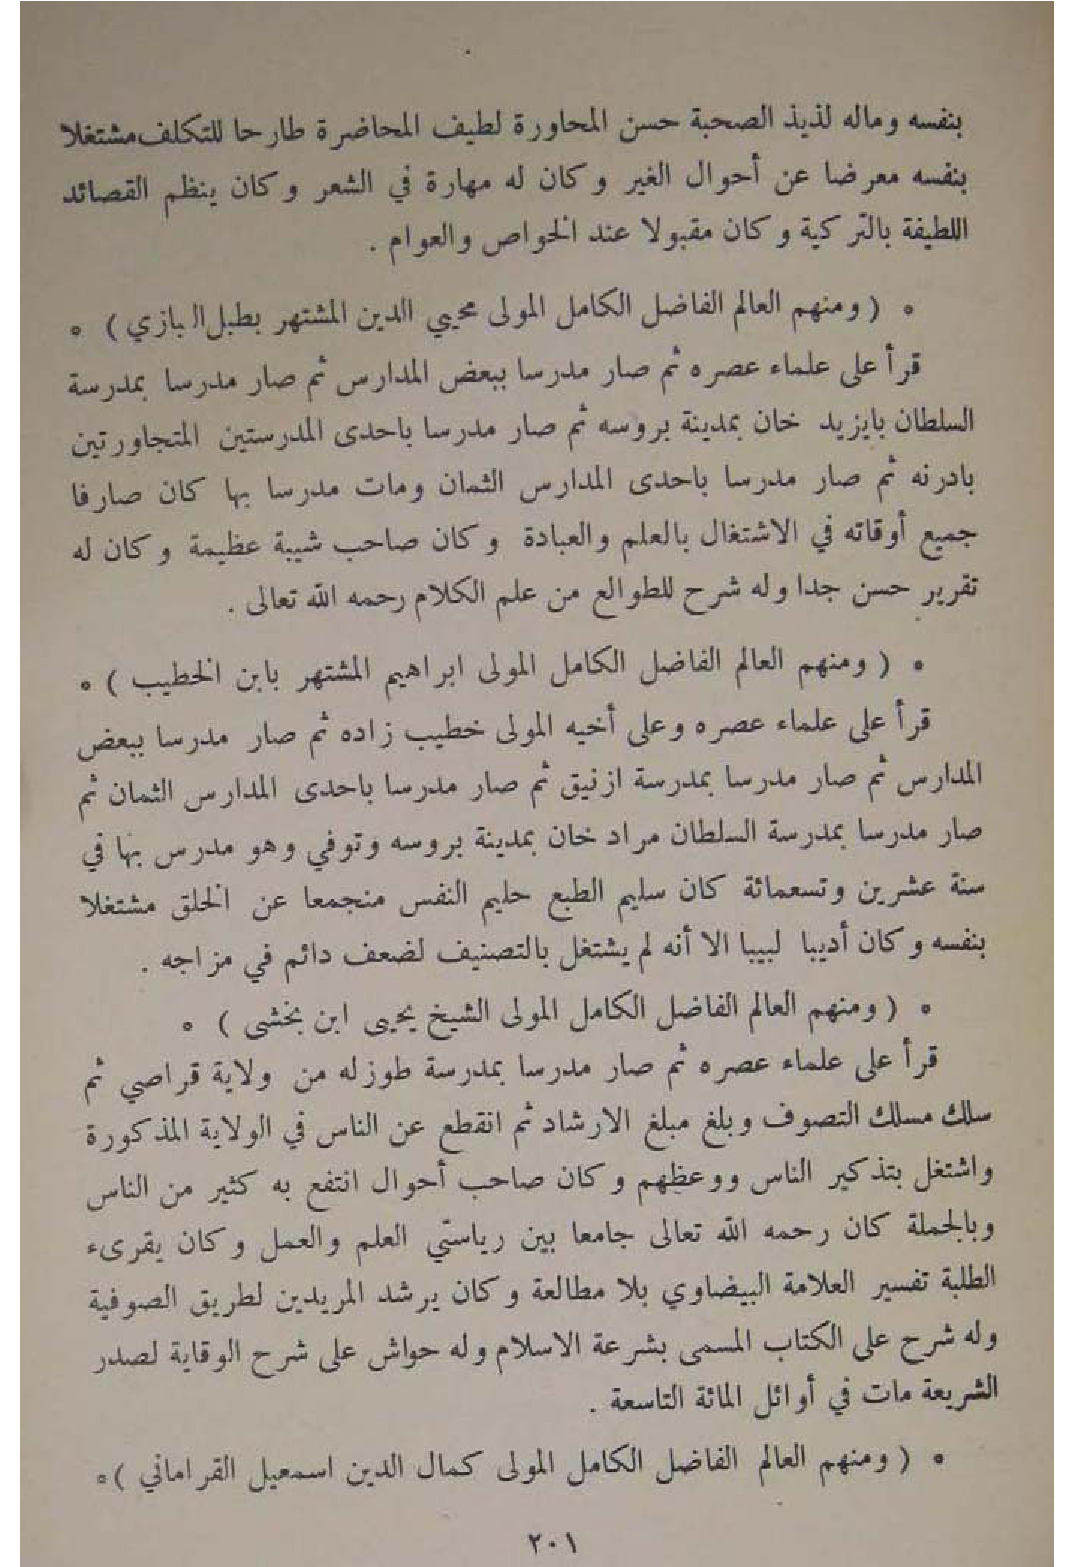 بنفسه وماله لذيذ الصحبة حسن المحاورة لطيف المحاضرة طارحا للتكلف مشتغلا
بنفسه معرضا عن أحوال الغير وكان له مهارة في الشعر وكان ينظم القصائد
اللطيفة بالتركية وكان مقبولا عند الخواص والعوام .
* ( ومنهم العالم الفاضل الكامل المولى محيي الدين المشتهر بطبل البازي ) *
قرأ على علماء عصره ثم صار مدرسا ببعض المدارس ثم صار مدرسا بمدرسة
السلطان بايزيد خان بمدينة بروسه ثم صار مدرسا باحدى المدرستين المتجاورتين
بادرنه ثم صار مدرسا باحدى المدارس الثمان ومات مدرسا بها كان صارفا
جميع أوقاته في الاشتغال بالعلم والعبادة وكان صاحب شيبة عظيمة وكان له
تقرير حسن جدا وله شرح للطوالع من علم الكلام رحمه الله تعالى .
* ( ومنهم العالم الفاضل الكامل المولى ابراهيم المشتهر بابن الخطيب ) *
قرأ على علماء عصره وعلى أخيه المولى خطيب زاده ثم صار مدرسا ببعض
المدارس ثم صار مدرسا بمدرسة ازنيق ثم صار مدرسا باحدى المدارس الثمان ثم
صار مدرسا بمدرسة السلطان مراد خان بمدينة بروسه وتوفي وهو مدرس بها في
سنة عشرين وتسعمائة كان سليم الطبع حليم النفس منجمعا عن الخلق مشتغلا
بنفسه وكان أديبا لبيبا الا أنه لم يشتغل بالتصنيف لضعف دائم في مزاجه .
* ( ومنهم العالم الفاضل الكامل المولى الشيخ يحيى ابن بخشى ) *
قرأ على علماء عصره ثم صار مدرسا بمدرسة طوزله من ولاية قراصي ثم
سلك مسلك التصوف وبلغ مبلغ الارشاد ثم انقطع عن الناس في الولاية المذكورة
واشتغل بتذكير الناس ووعظهم وكان صاحب أحوال انتفع به كثير من الناس
وبالجملة كان رحمه الله تعالى جامعا بين رياستي العلم والعمل وكان يقرىء
الطلبة تفسير العلامة البيضاوي بلا مطالعة وكان يرشد المريدين لطريق الصوفية
وله شرح على الكتاب المسمى بشرعة الاسلام وله حواش على شرح الوقاية لصدر
الشريعة مات في أوائل المائة التاسعة .
* ( ومنهم العالم الفاضل الكامل المولى كمال الدين اسمعيل القراماني ) *
٢٠١